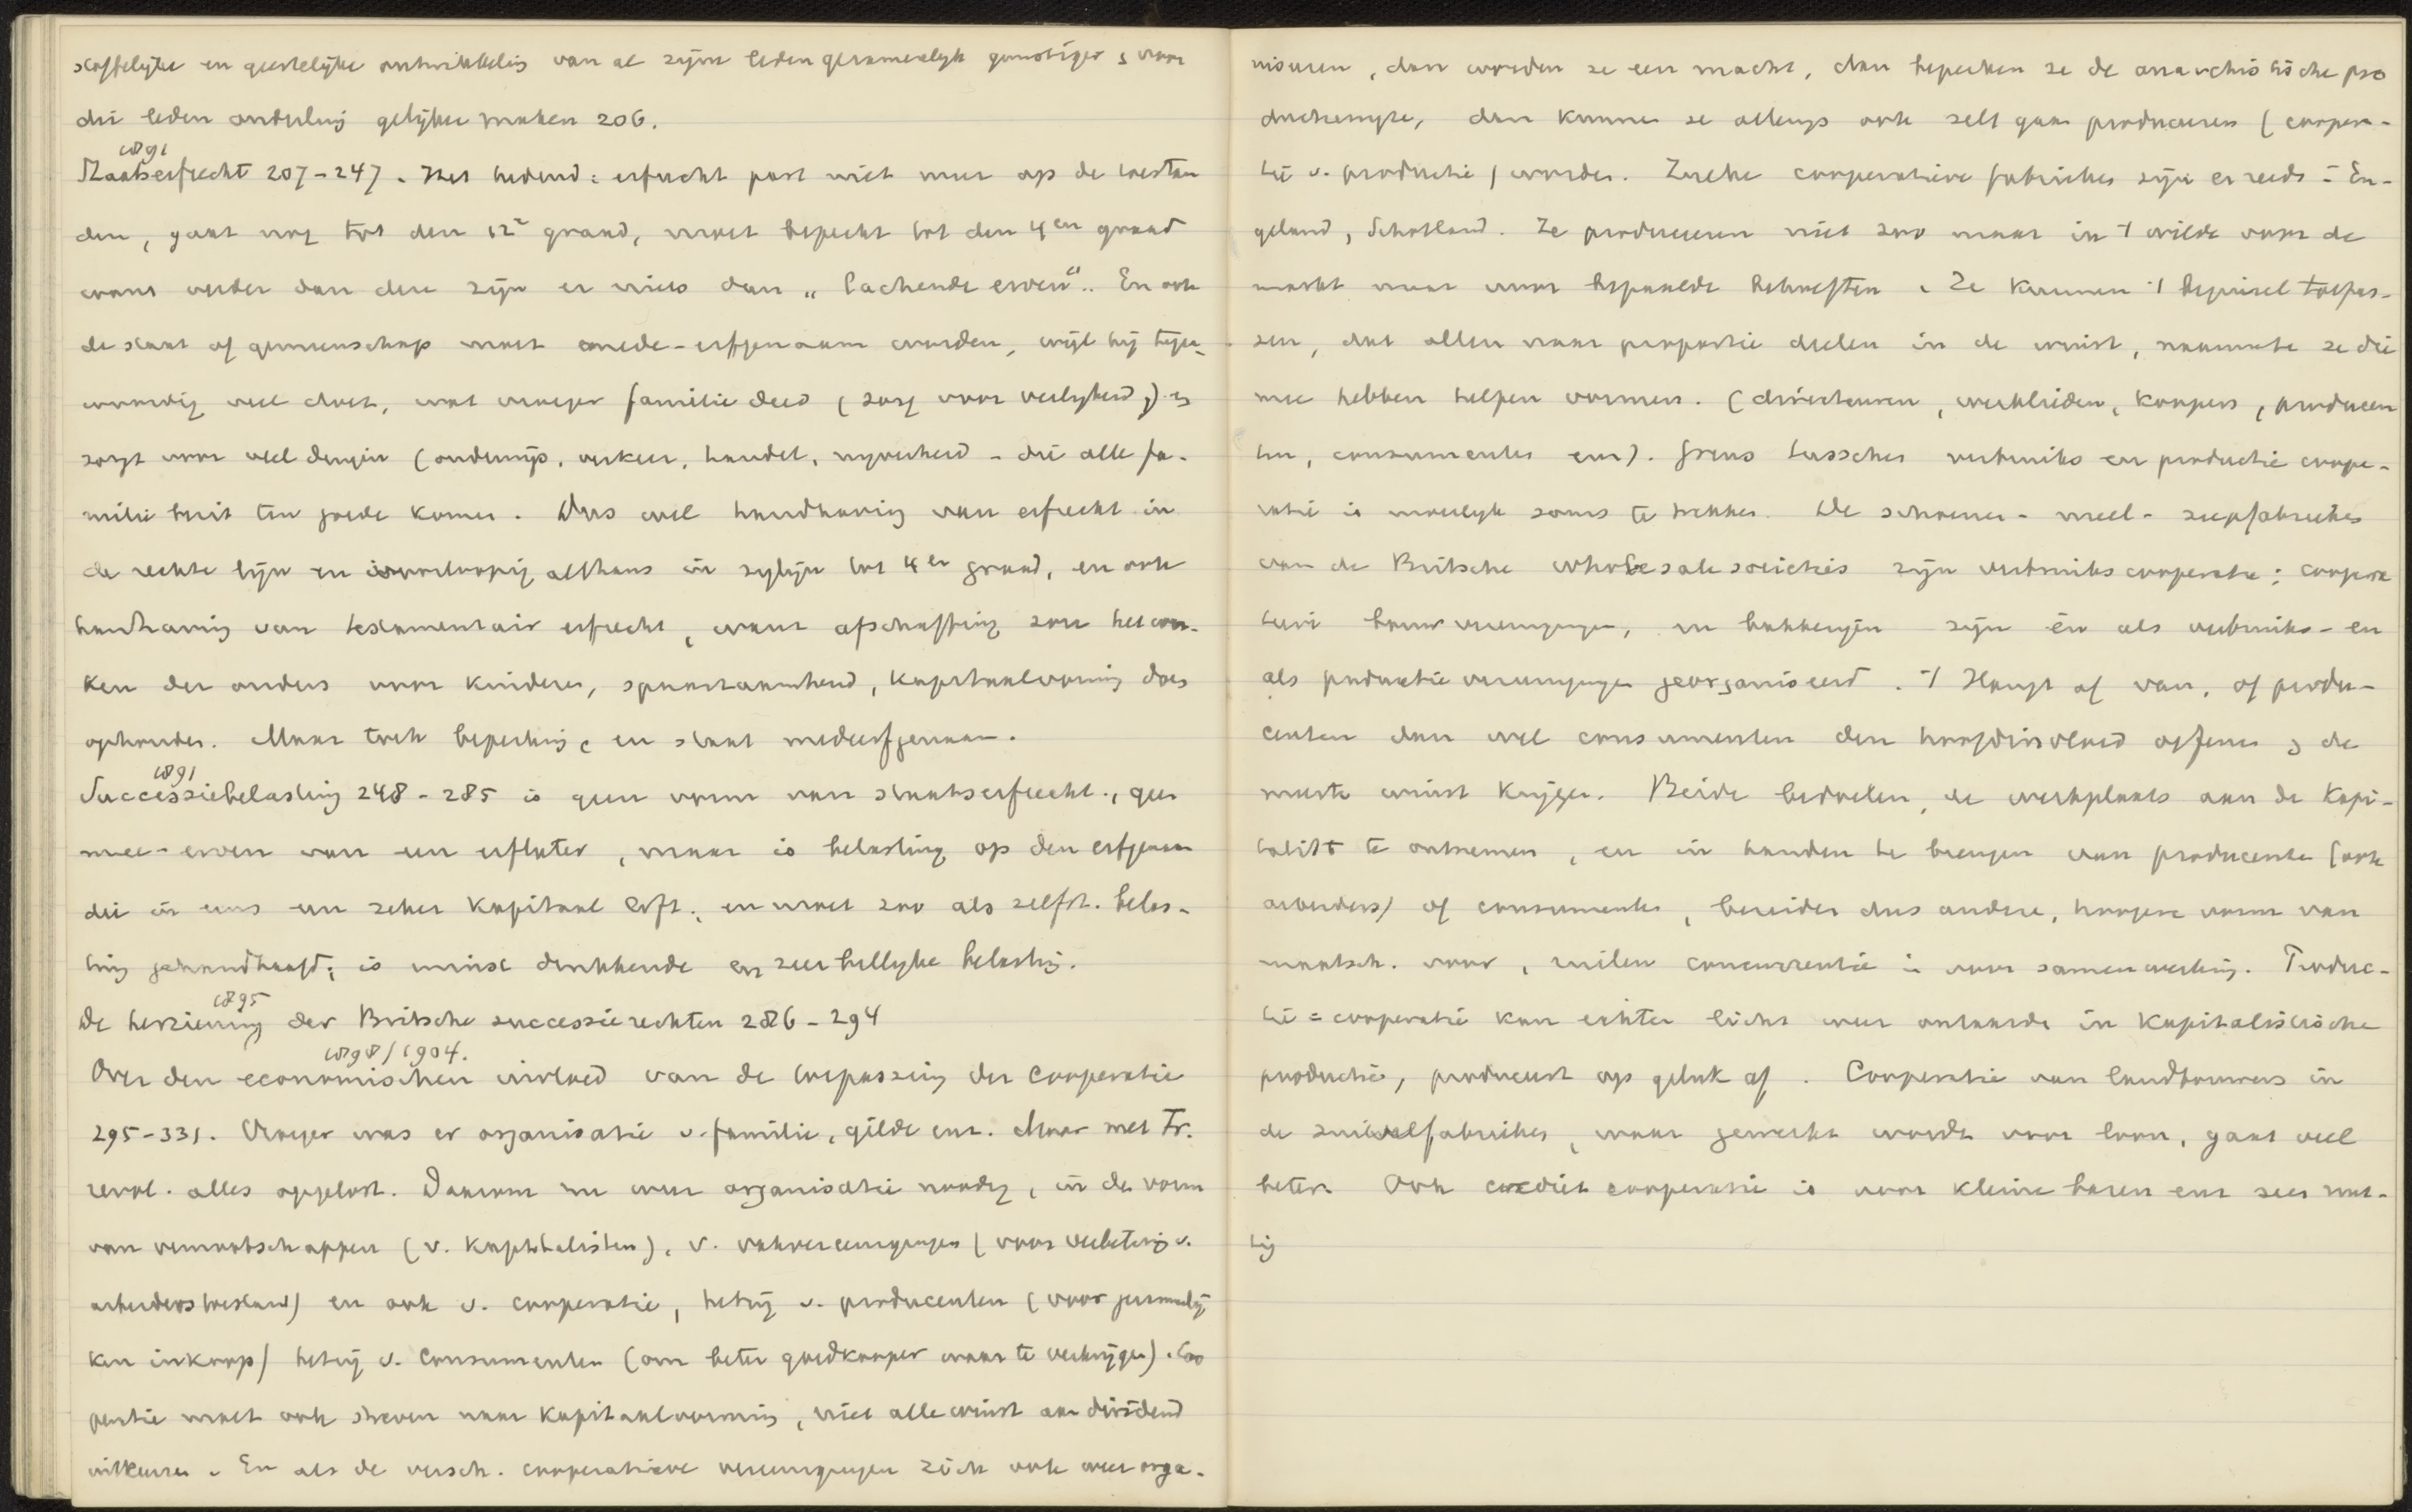 stoffelijke en geestelijke ontwikkeling van al zijne leden gezamenlijk gunstiger, voor
die leden onderling gelijker maken 206.
1891
Staatserfrecht 207-247. Het hedend: erfrecht past niet meer op de toestan
den, gaat nog tot den 12e graad, moet beperkt tot den 4en graad
want verder dan deze zijn er niets dan „lachende erven". En ook
de staat of gemeenschap moet mede-erfgenaam worden, wijl hij tegen-
woordig veel doet, wat vroeger familie deed (zorg voor veiligheid) en
zorgt voor veel dingen (onderwijs, verkeer, handel, nyverheid - die alle fa-
milie bezit ten goede komen. Dus wel handhaving van erfrecht in
de rechte lijn en voorloopig althans in zylijn tot 4en graad, en ook
handhaving van testamentair erfrecht, want afschaffing zou het wer-
ken der ouders voor kinderen, spaarzaamheid, kapitaalvorming doen
ophouden. Maar toch beperking en staat medeerfgenaam.
1891
Successiebelasting 248-285 is geen vorm van staatserfrecht, geen
mee-erven van een erflater, maar is belasting op den erfgenaam
die in eens een zeker kapitaal erft; en moet zoo als zelfst. belas-
ting gehandhaafd; is minst drukkende en zeer billyke belasting.
1895
De herziening der Britsche successierechten 286-294
1898/1904.
Over den economischen invloed van de toepassing der Cooperatie
295-331. Vroeger was er organisatie v. familie, gilde enz. Maar met Fr.
revol. alles opgelost. Daarom nu weer organisatie noodig, in den vorm
van vennootschappen (v. kapitalisten), v. vakvereenigingen (voor verbetering v.
arbeiderstoestand) en ook v. cooperatie, hetzij v. producenten (voor gezamenlij
ken inkoop) hetzij v. Consumenten (om beter goedkooper waar te verkrijgen). Coo
peratie moet ook streven naar kapitaalvorming, niet alle winst aan dividend
uitkeeren. En als de versch. cooperatieve vereenigingen zich ook weer orga-
niseeren, dan worden ze een macht, dan beperken ze de anarchistische pro
ductiewyze, dan kunnen ze allengs ook zelf gaan produceeren (coopera-
tie v. productie) worden. Zulke cooperatieve fabrieken zijn er reeds in En-
geland, Schotland. Ze produceeren niet zoo maar in 't wilde voor de
markt maar voor bepaalde behoeften. Ze kunnen 't beginsel toepas-
sen, dat allen naar proportie deelen in de winst, naarmate ze die
mee hebben helpen vormen. (directeuren, werklieden, koopers, producen
ten, consumenten enz). Grens tusschen verbruiks en productie coope-
ratie is moeilyk soms te trekken. De schoenen- meel- zeepfabrieken
van de Britsche wholesale societies zijn verbruikscooperatie; coopera
tieve bouwvereenigingen, en bakkerijen zijn èn als verbruiks- en
als productie vereenigingen georganiseerd. 't Hangt af van, of produ-
centen dan wel consumenten den hoofdinvloed oefenen en de
meeste winst krijgen. Beide bedoelen, de werkplaats aan de kapi-
talist te ontnemen, en in handen te brengen van producenten (ook
arbeiders) of consumenten, bereiden dus andere, hoogere vorm van
maatsch. voor, ruilen concurrentie in voor samenwerking. Produc-
tie = cooperatie kan echter licht weer ontaarden in kapitalistische
productie, produceert op geluk af. Cooperatie van landbouwers in
de zuivelfabrieken, waar gewerkt wordt voor loon, gaat veel
beter. Ook crediet cooperatie is voor kleine bazen enz zeer nut-
tig